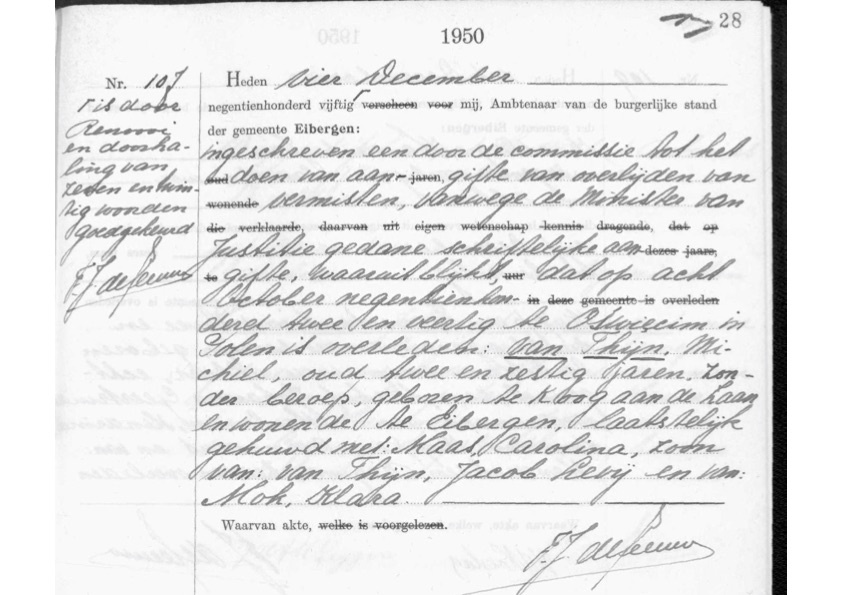 28
1950
Nr. 107 Heden vier December
negentienhonderd vijftig verscheen voor mij, Ambtenaar van de burgerlijke stand
der gemeente Eibergen:
ingeschreven een door de commissie tot het
oud doen van aan- jaren, gifte van overlijden van
wonende vermisten, vanwege de Minister van
die verklaarde, daarvan uit eigen wetenschap kennis dragende, dat op
Justitie gedane schriftelijke aan- dezes jaars,
te gifte, waaruit blijkt, uur dat op acht
October negentienhon- in deze gemeente is overleden
derd twee en veertig te Oswiecim in
Polen is overleden: van Thijn, Mi-
chiel, oud twee en zestig jaren, zon-
der beroep, geboren te Koog aan de Zaan
en wonende te Eibergen, laatstelijk
gehuwd met: Maas, Carolina, zoon
van: van Thijn, Jacob Levij en van:
Mok, Klara.
Waarvan akte, welke is voorgelezen.
F.J. de Leeuw
is door
Renvooi
en doorha-
ling van
zeven en twin-
tig woorden
goedgekeurd
F.J. de Leeuw